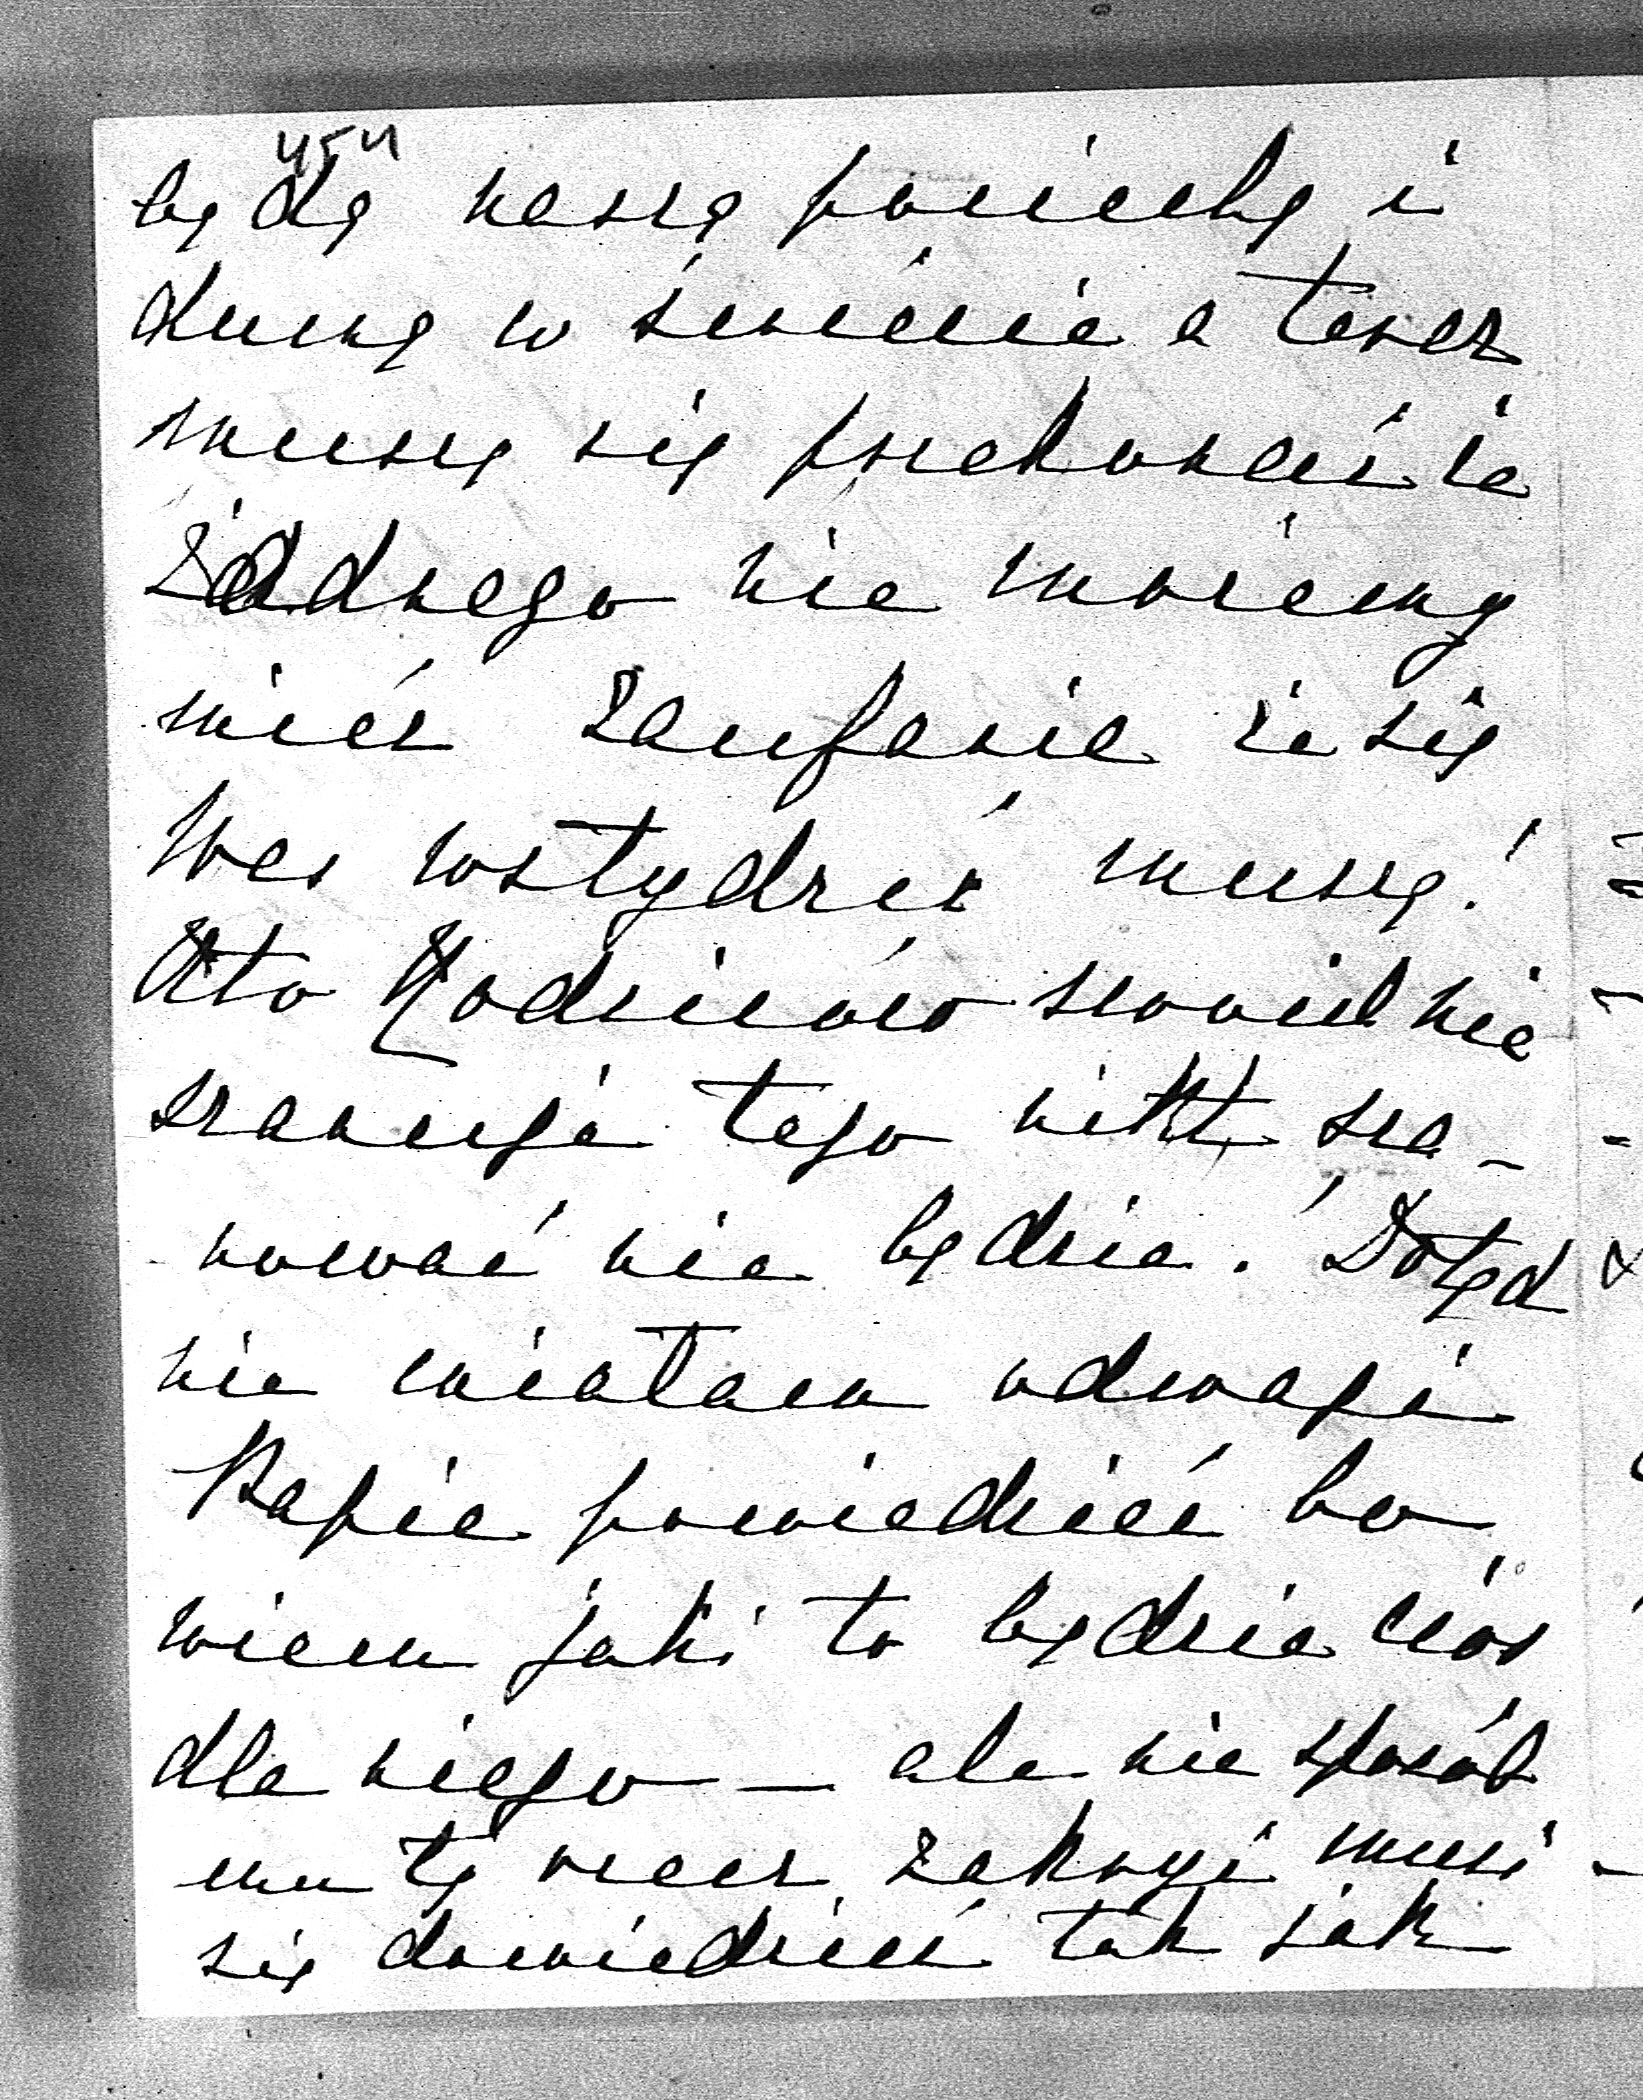 454
będą naszą pociechą i
dumą w świecie a teraz
muszę się przekonać że
żadnego nie możemy
mieć zaufania że się
Was wstydzić muszę!
Kto Rodziców swoich nie
szanuje tego nikt sza-
nować nie będzie! Dotąd
nie miałam odwagi
Papie powiedzieć bo
wiem jaki to będzie cios
dla niego — ale nie sposób
mu tę rzecz zakryć musi
się dowiedzieć tak jak